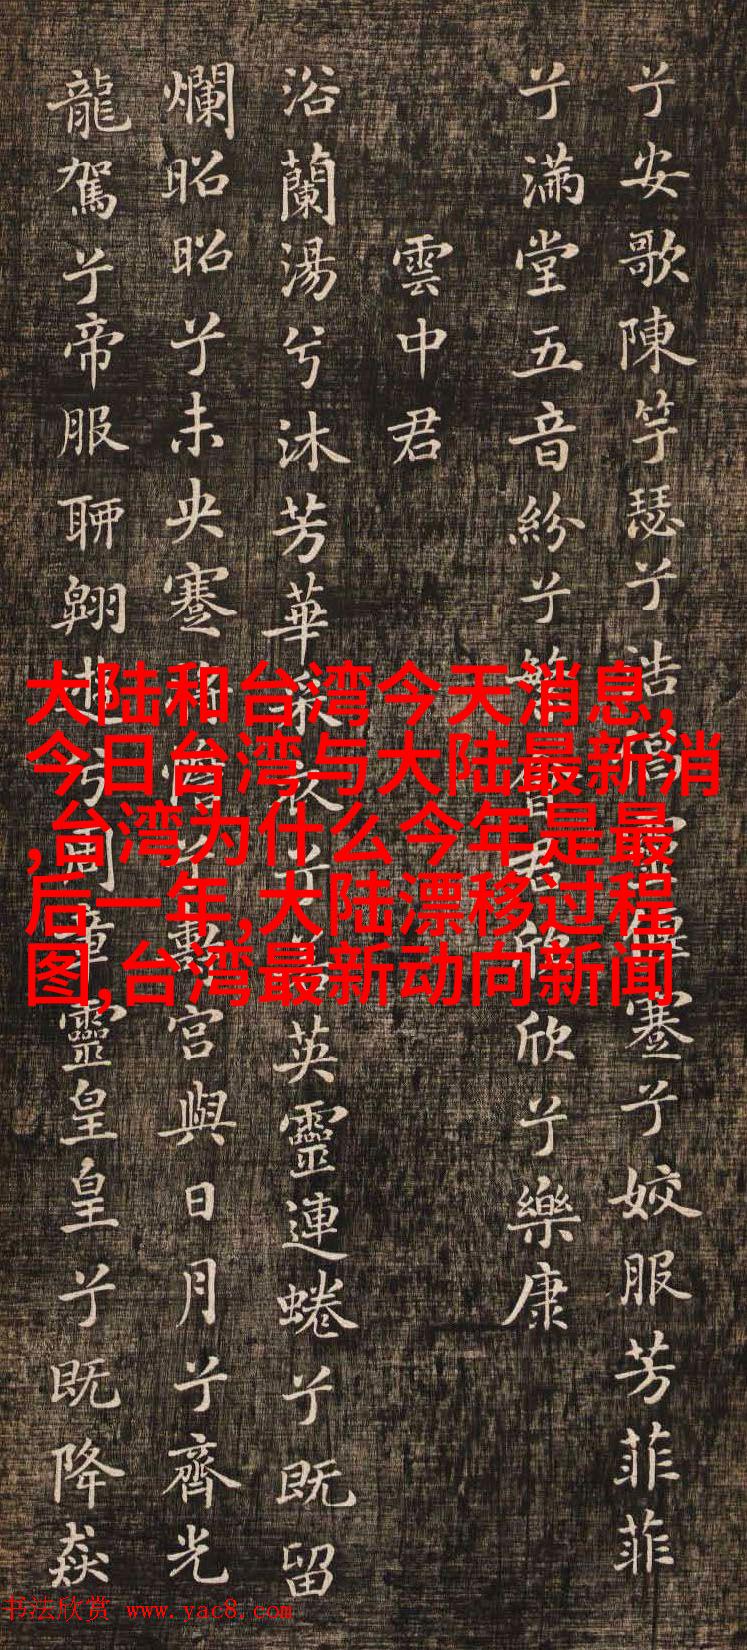 兮安歌陳竽瑟兮浩倡靈偃蹇兮姣服芳菲菲
兮滿堂五音紛兮繁會君欣欣兮樂康
雲中君
浴蘭湯兮沐芳華采衣兮若英靈連蜷兮既留
爛昭昭兮未央蹇将憺兮壽宮與日月兮齊光
龍駕兮帝服聊翱遊兮周章靈皇皇兮既降猋
大陆和台湾今天消息,
今日台湾与大陆最新消
,台湾为什么今年是最
后一年,大陆漂移过程
图,台湾最新动向新闻
书法欣赏 www.yac8.com